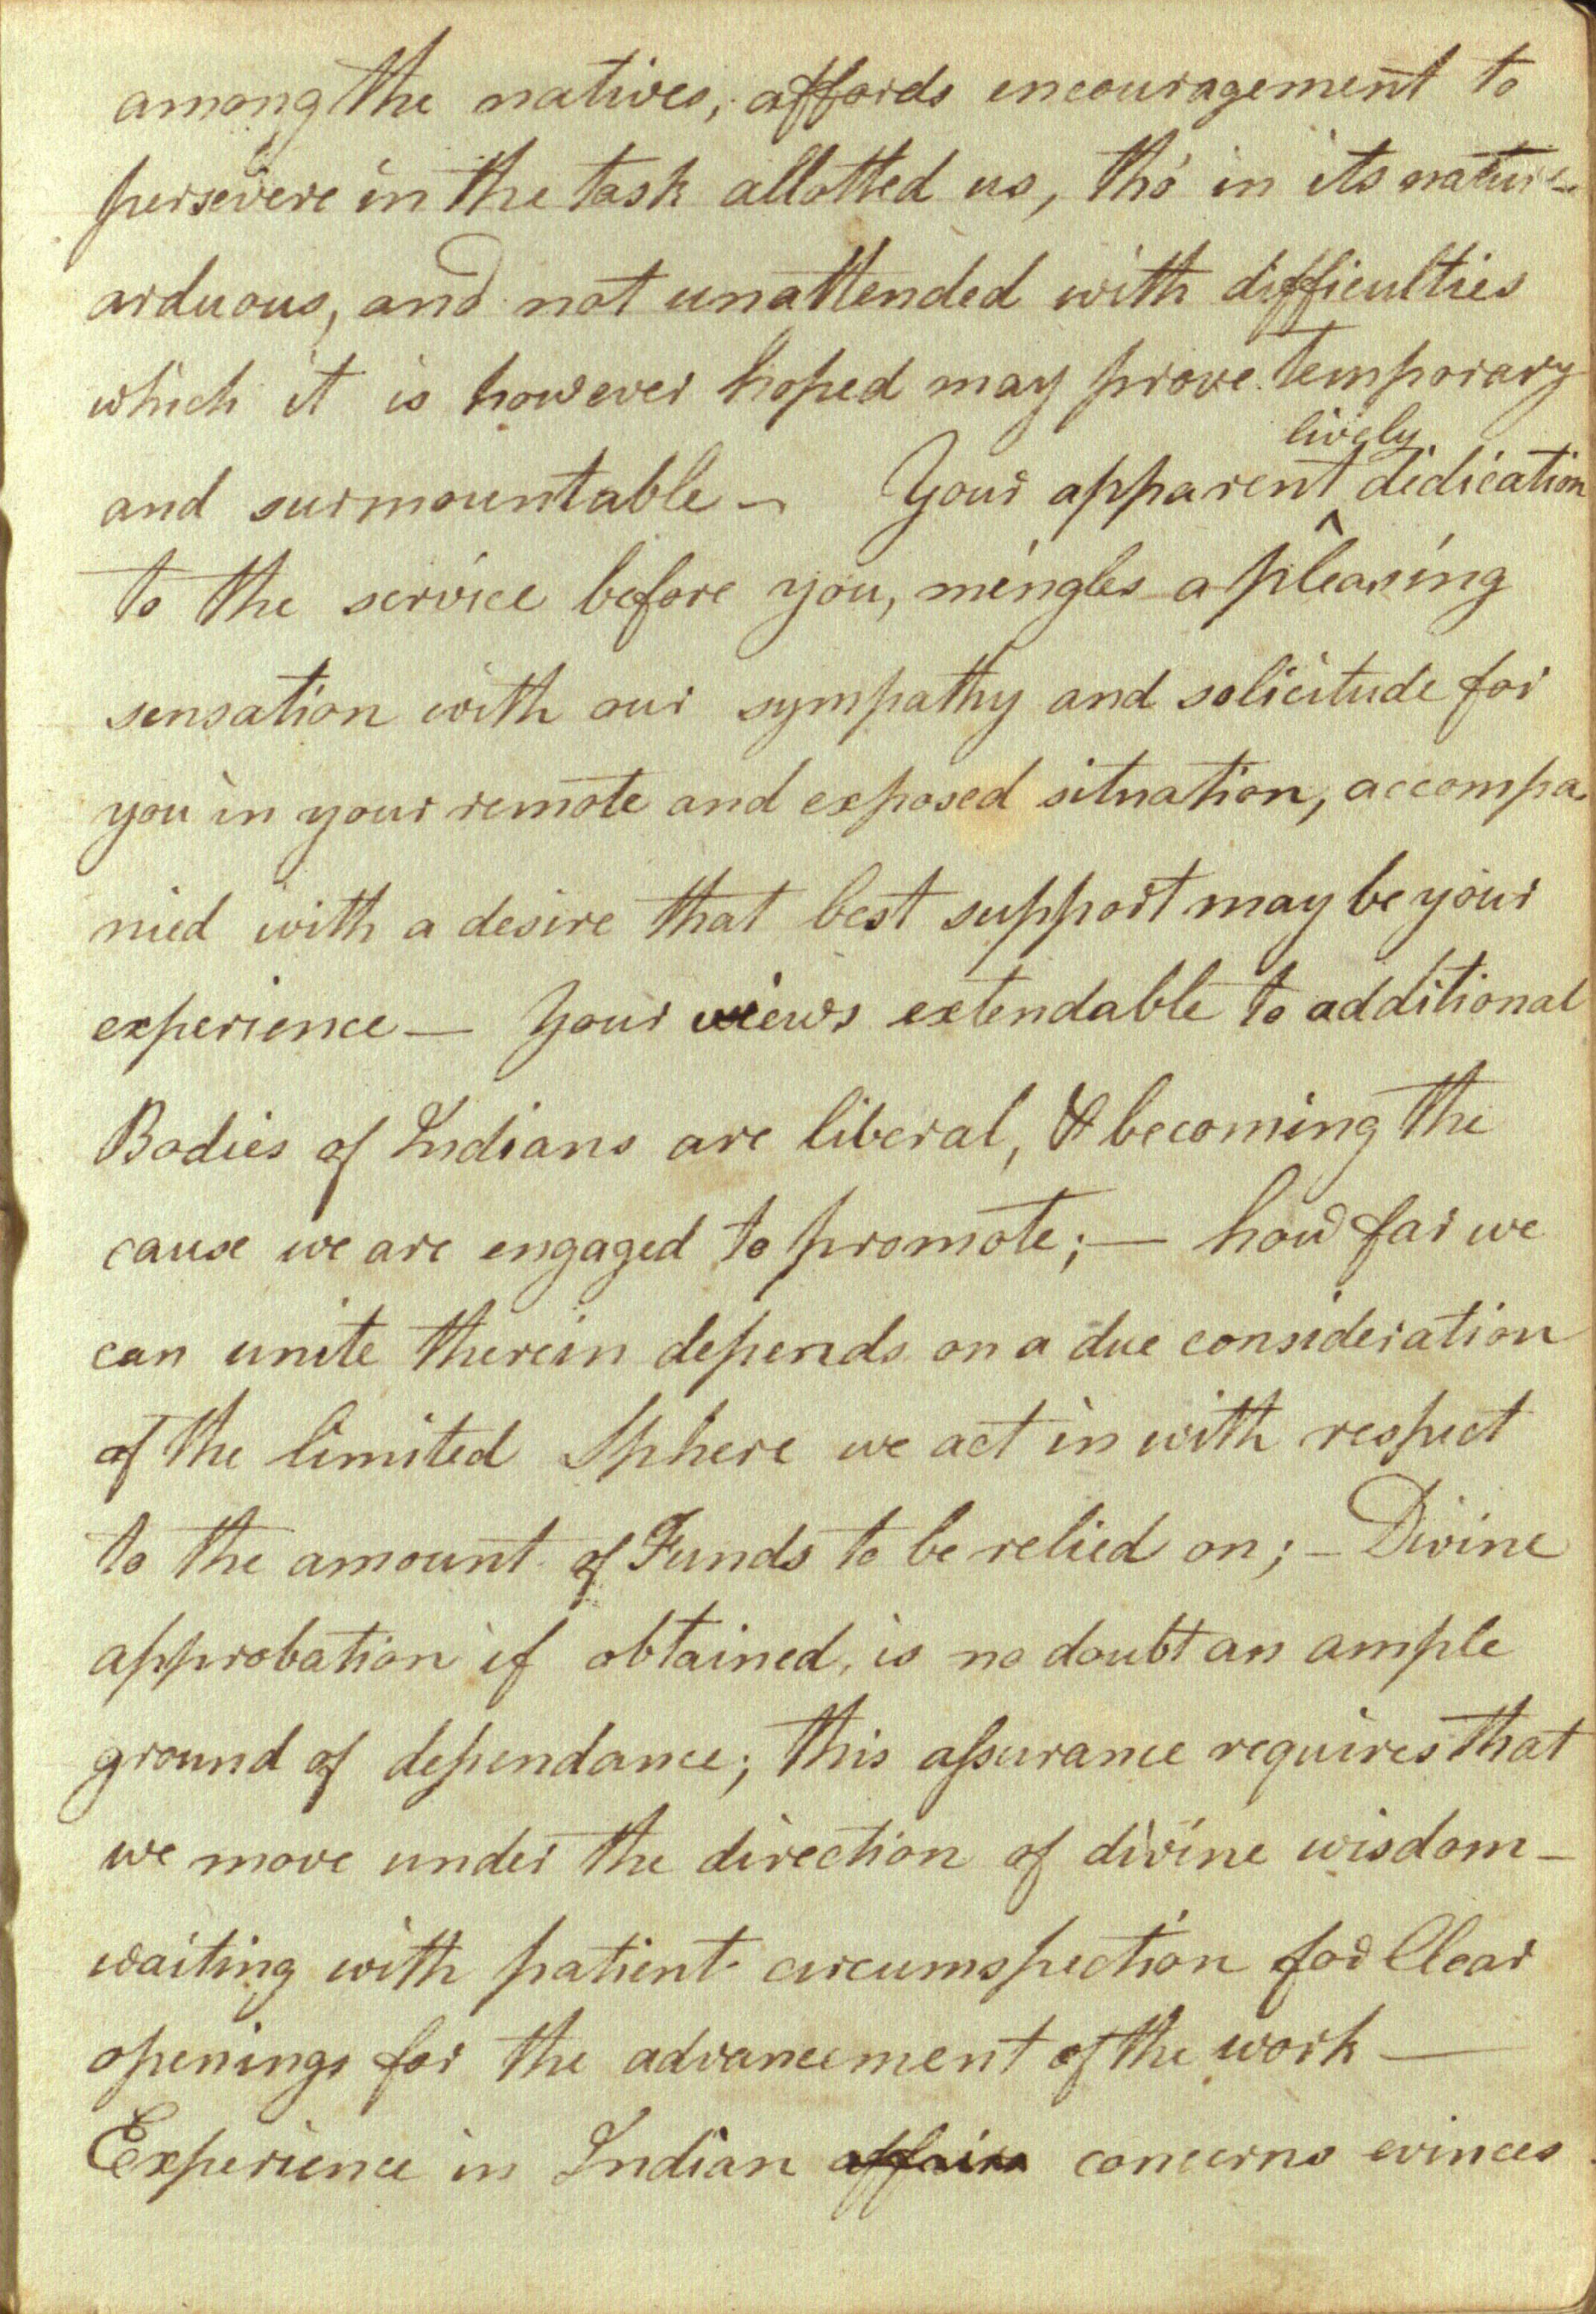 among the natives, affords encouragement to
persevere in the task allotted us, tho' in its nature
arduous, and not unattended with difficulties
which it is however hoped may prove temporary
lively
and surmountable – Your apparent ^ dedication
to the service before you, mingles a pleasing
sensation with our sympathy and solicitude for
you in your remote and exposed situation, accompa-
nied with a desire that best support may be your
experience — Your views extendable to additional
Bodies of Indians are liberal, & becoming the
cause we are engaged to promote; — how far we
can unite therein depends on a due consideration
of the limited Sphere we act in with respect
to the amount of Funds to be relied on; – Divine
approbation if obtained, is no doubt an ample
ground of dependance; this assurance requires that
we move under the direction of divine wisdom –
waiting with patient circumspection for Clear
openings for the advancement of the work —
Experience in Indian affairs concerns evinces